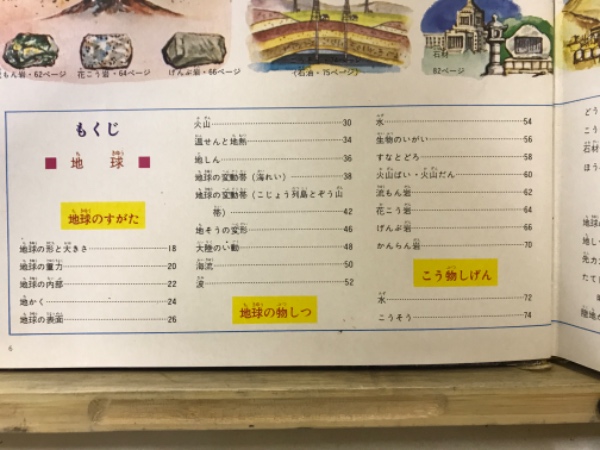 もん岩・62ページ
花こう岩・64ページ
げんぶ岩・66ページ
(石油・75ページ)
石材
82ページ
もくじ
■ 地球 ■
地球のすがた
地球の形と大きさ 18
地球の重力 20
地球の内部 22
地かく 24
地球の表面 26
火山 30
温せんと地熱 34
地しん 36
地球の変動帯(海れい) 38
地球の変動帯(こじょう列島とぞう山
帯) 42
地そうの変形 46
大陸のい動 48
海流 50
波 52
地球の物しつ
氷 54
生物のいがい 56
すなとどろ 58
火山ばい・火山だん 60
流もん岩 62
花こう岩 64
げんぶ岩 66
かんらん岩 70
こう物しげん
水 72
こうそう 74
6
どう
こう
石材
ほう
地球
地し
発力
たて
陸地